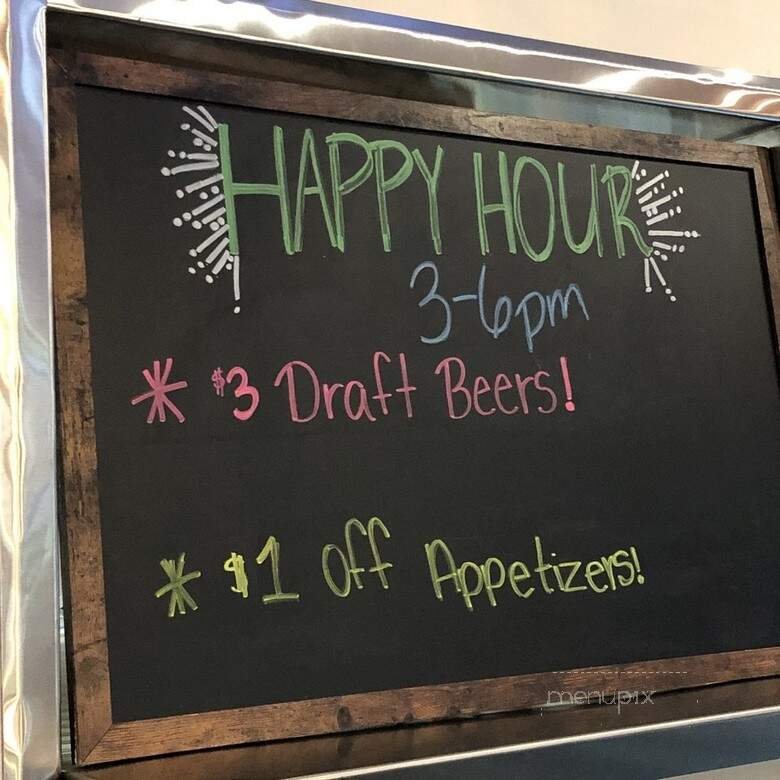 HAPPY HOUR
3-6pm
* $3 Draft Beers!
* $1 off Appetizers!
menupix